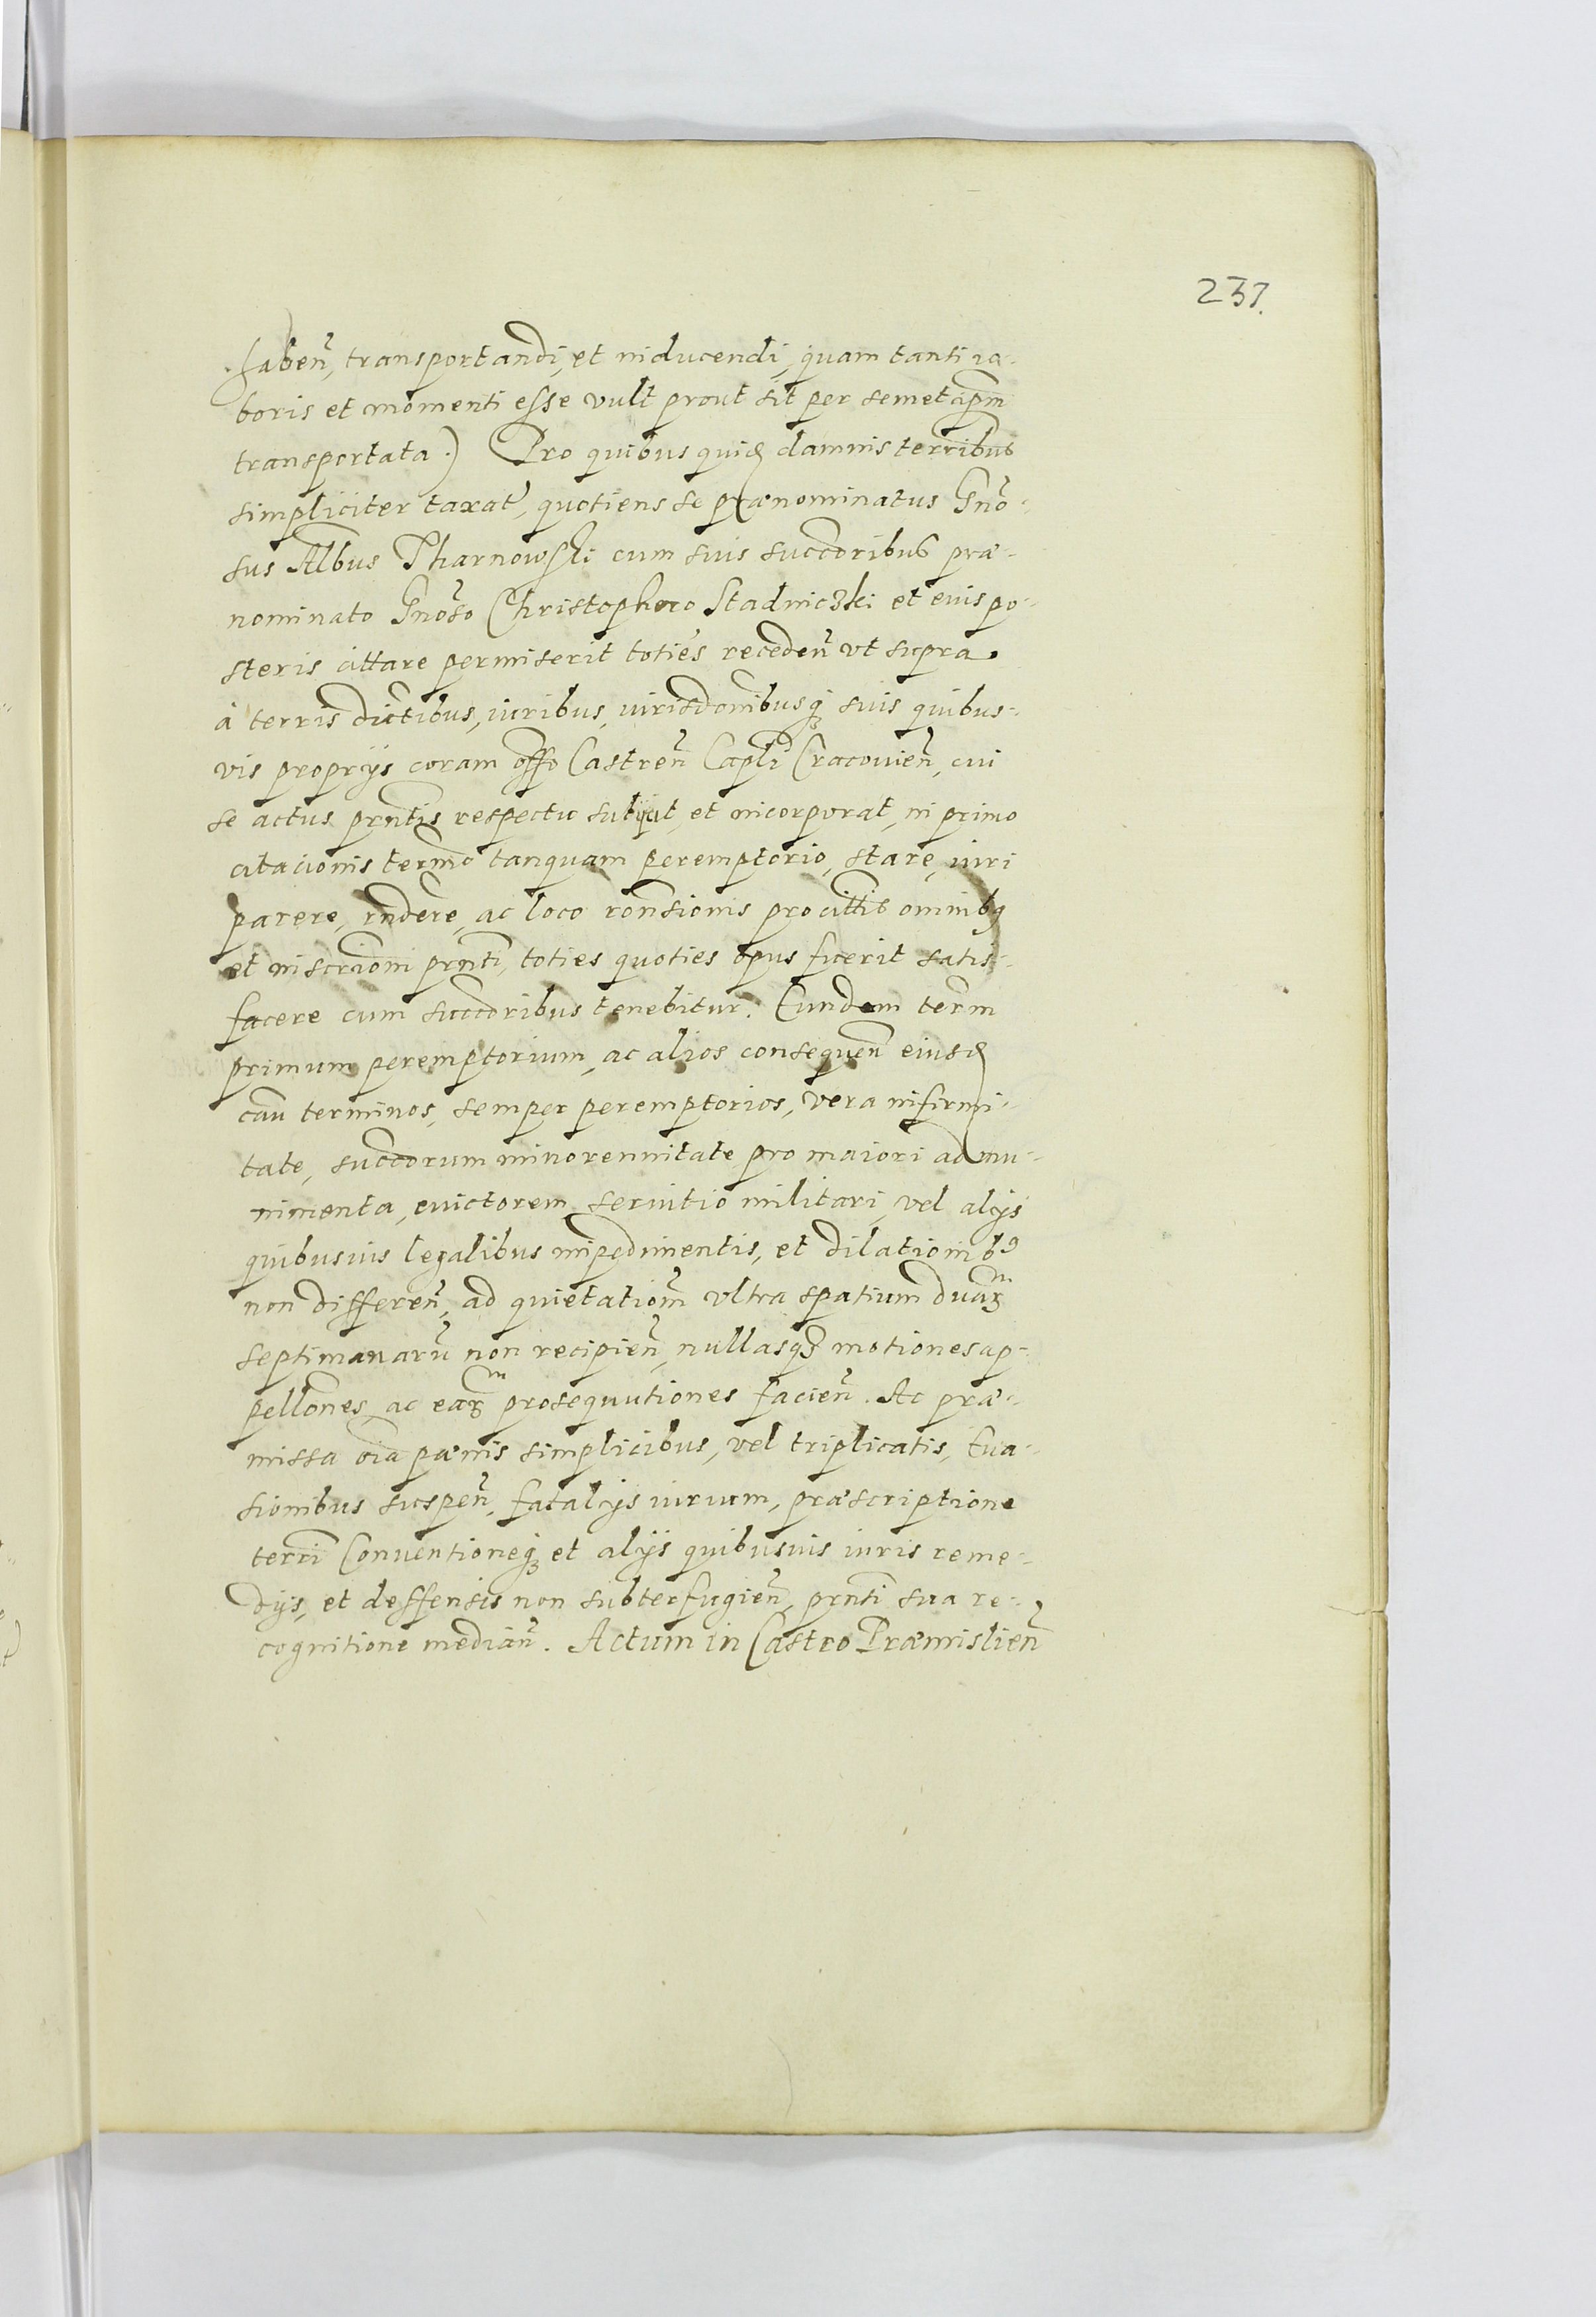 237.
haben̄, transportandi, et inducendi, quam tanti ro-
boris et momenti esse vult prout sit per semet ip̄m
transportata.) Pro quibus quid damnis ter̄ribus
simpliciter taxat̄, quotiens se prænominatus Gn̄o-
sus Alb̄us Tharnowski cum suis succ̄oribus præ-
nominato Gn̄oso Christophoro Stadniczki et eius po-
steris cittare permiserit toties reced̄en̄ vt supra
à terris dictibus, iuribus, iurisd̄onibusq; suis quibus-
vis proprijs coram off̄o Castren̄ Capl̄i Cracouien̄, cui
se actus pr̄ntis respectu subijcit, et incorporat, in primo
citacionis term̄o tanquam peremptorio, stare, iuri
parere, rn̄dere, ac loco ron̄sionis pro citt̄is omnibq
et inscr̄ioni pr̄nti, toties quoties opus fuerit satis-
facere cum succ̄oribus tenebitur. Eundem term̄
primum peremptorium, ac alios consequen̄ eiusd
cau̅ terminos, semper peremptorios, vera infirmi-
tate, succ̄orum minorennitate pro maiori ad mu-
nimenta, euictorem, seruitio militari, vel alijs
quibusuis legalibus impedimentis, et dilationib9
non differen̄, ad quietation̄m vltra spatium duar̄m
septimanarū non recipien̄, nullasq3 motiones ap-
pellōnes, ac ear̄m prosequutiones facien̄. Ac præ-
missa oīa pœnis simplicibus, vel triplicatis, Eua-
sionibus suspen̄, fatalijs iurium, præscriptione
terr̄i Conuentioneq; et alijs quibusuis iuris reme-
dijs, et deffensis non subterfugien̄, pr̄nti sua re-
cognitione median̄. Actum in Castro Præmislien̄